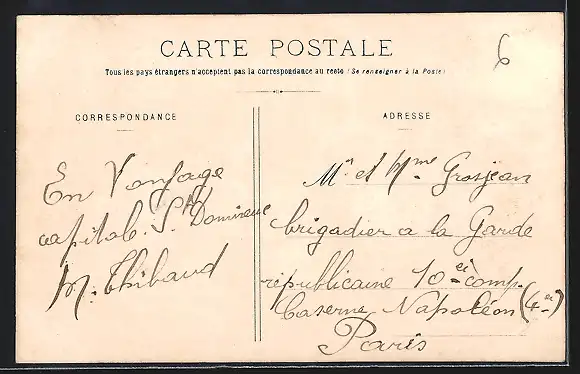 CARTE POSTALE
6
Tous les pays étrangers n'acceptent pas la correspondance au recto (Se renseigner à la Poste)
CORRESPONDANCE
En Voyage
capitale St Domingue
M. Thibaud
ADRESSE
Mr et Mme Grosjean
brigadier a la Garde
républicaine 10e comp.
Caserne Napoléon (4er)
Paris